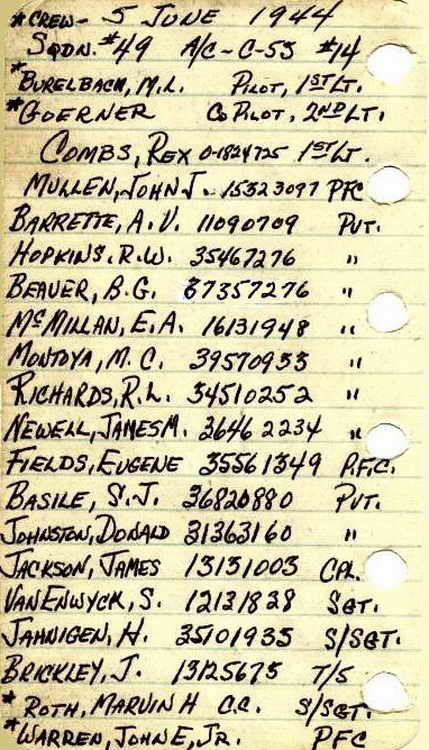 *CREW- 5 JUNE 1944
SQDN. #49 A/C-C-53 #14
*BURELBACH, M.L. PILOT, 1ST LT.
*GOERNER CO PILOT, 2ND LT.
COMBS, REX O-1824725 1ST LT.
MULLEN, JOHN J. 15323097 PFC
BARRETTE, A.V. 11090709 PVT.
HOPKINS, R.W. 35467276 "
BEAVER, B.G. 37357276 "
McMILLAN, E.A. 16131948 "
MONTOYA, M.C. 39570933 "
RICHARDS, R.L. 34510252 "
NEWELL, JAMES M. 36462234 "
FIELDS, EUGENE 35561349 P.F.C.
BASILE, S.J. 36820880 PVT.
JOHNSTON, DONALD 31363160 "
JACKSON, JAMES 13131003 CPL.
VAN ENWYCK, S. 12131828 SGT.
JAHNIGEN, H. 35101935 S/SGT.
BRICKLEY, J. 13125675 T/5
* ROTH, MARVIN H C.C. S/SGT.
*WARREN, JOHN E, JR. PFC